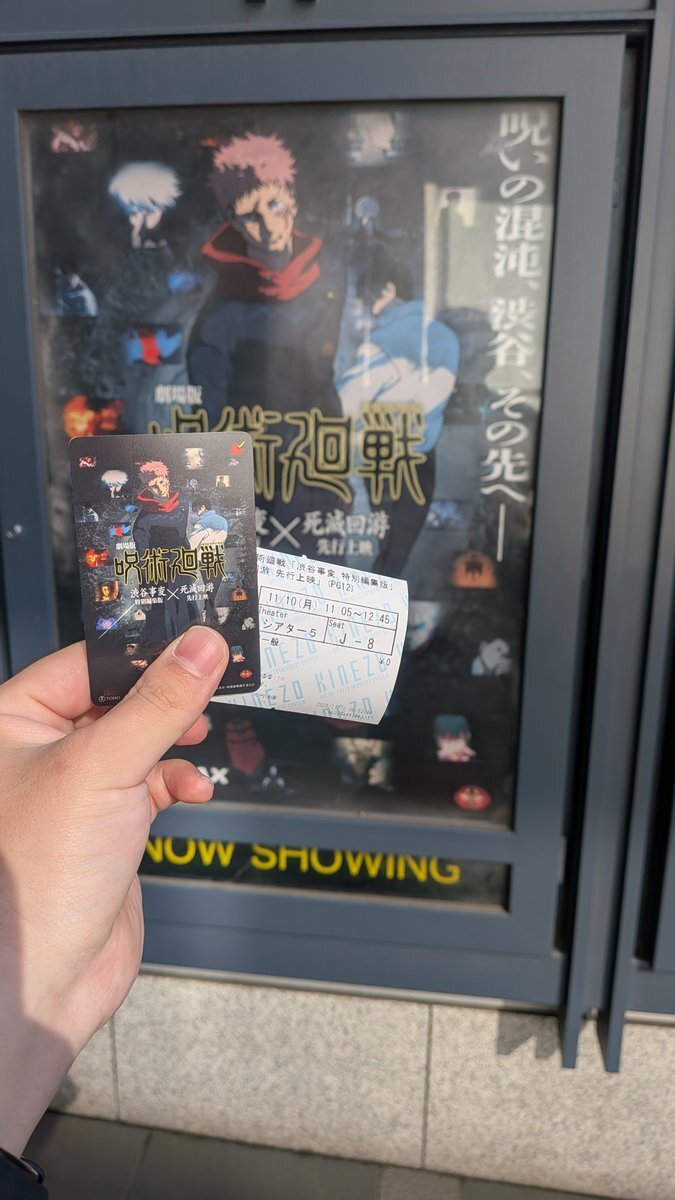 呪いの混沌、渋谷、その先へ──
劇場版
呪術廻戦
変×死滅回游
先行上映
劇場版
呪術廻戦
渋谷事変×死滅回游
特別編集版 先行上映
TOHO
術廻戦「渋谷事変 特別編集版」
游 先行上映」(PG12)
11/10(月) 11:05〜12:45
Theater
シアター5
Seat
J-8
一般
¥0
KINEZO
KINEZO
NOW SHOWING